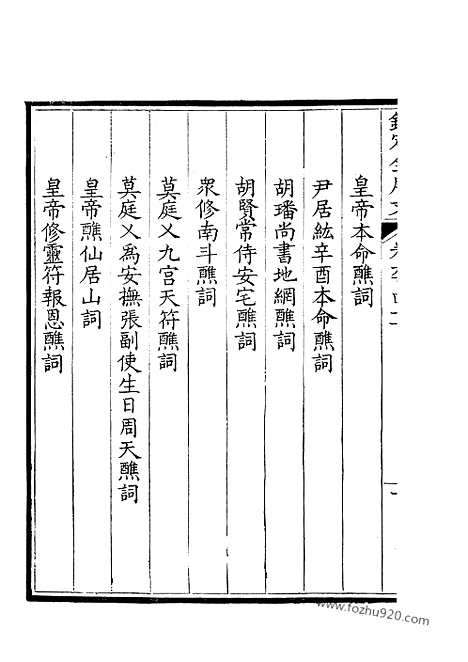 皇帝本命醮詞
尹居紘辛酉本命醮詞
胡璠尚書地網醮詞
胡賢常侍安宅醮詞
衆修南斗醮詞
莫庭乂九宮天符醮詞
莫庭乂為安撫張副使生日周天醮詞
皇帝醮仙居山詞
皇帝修靈符報恩醮詞
www.fozhu920.com